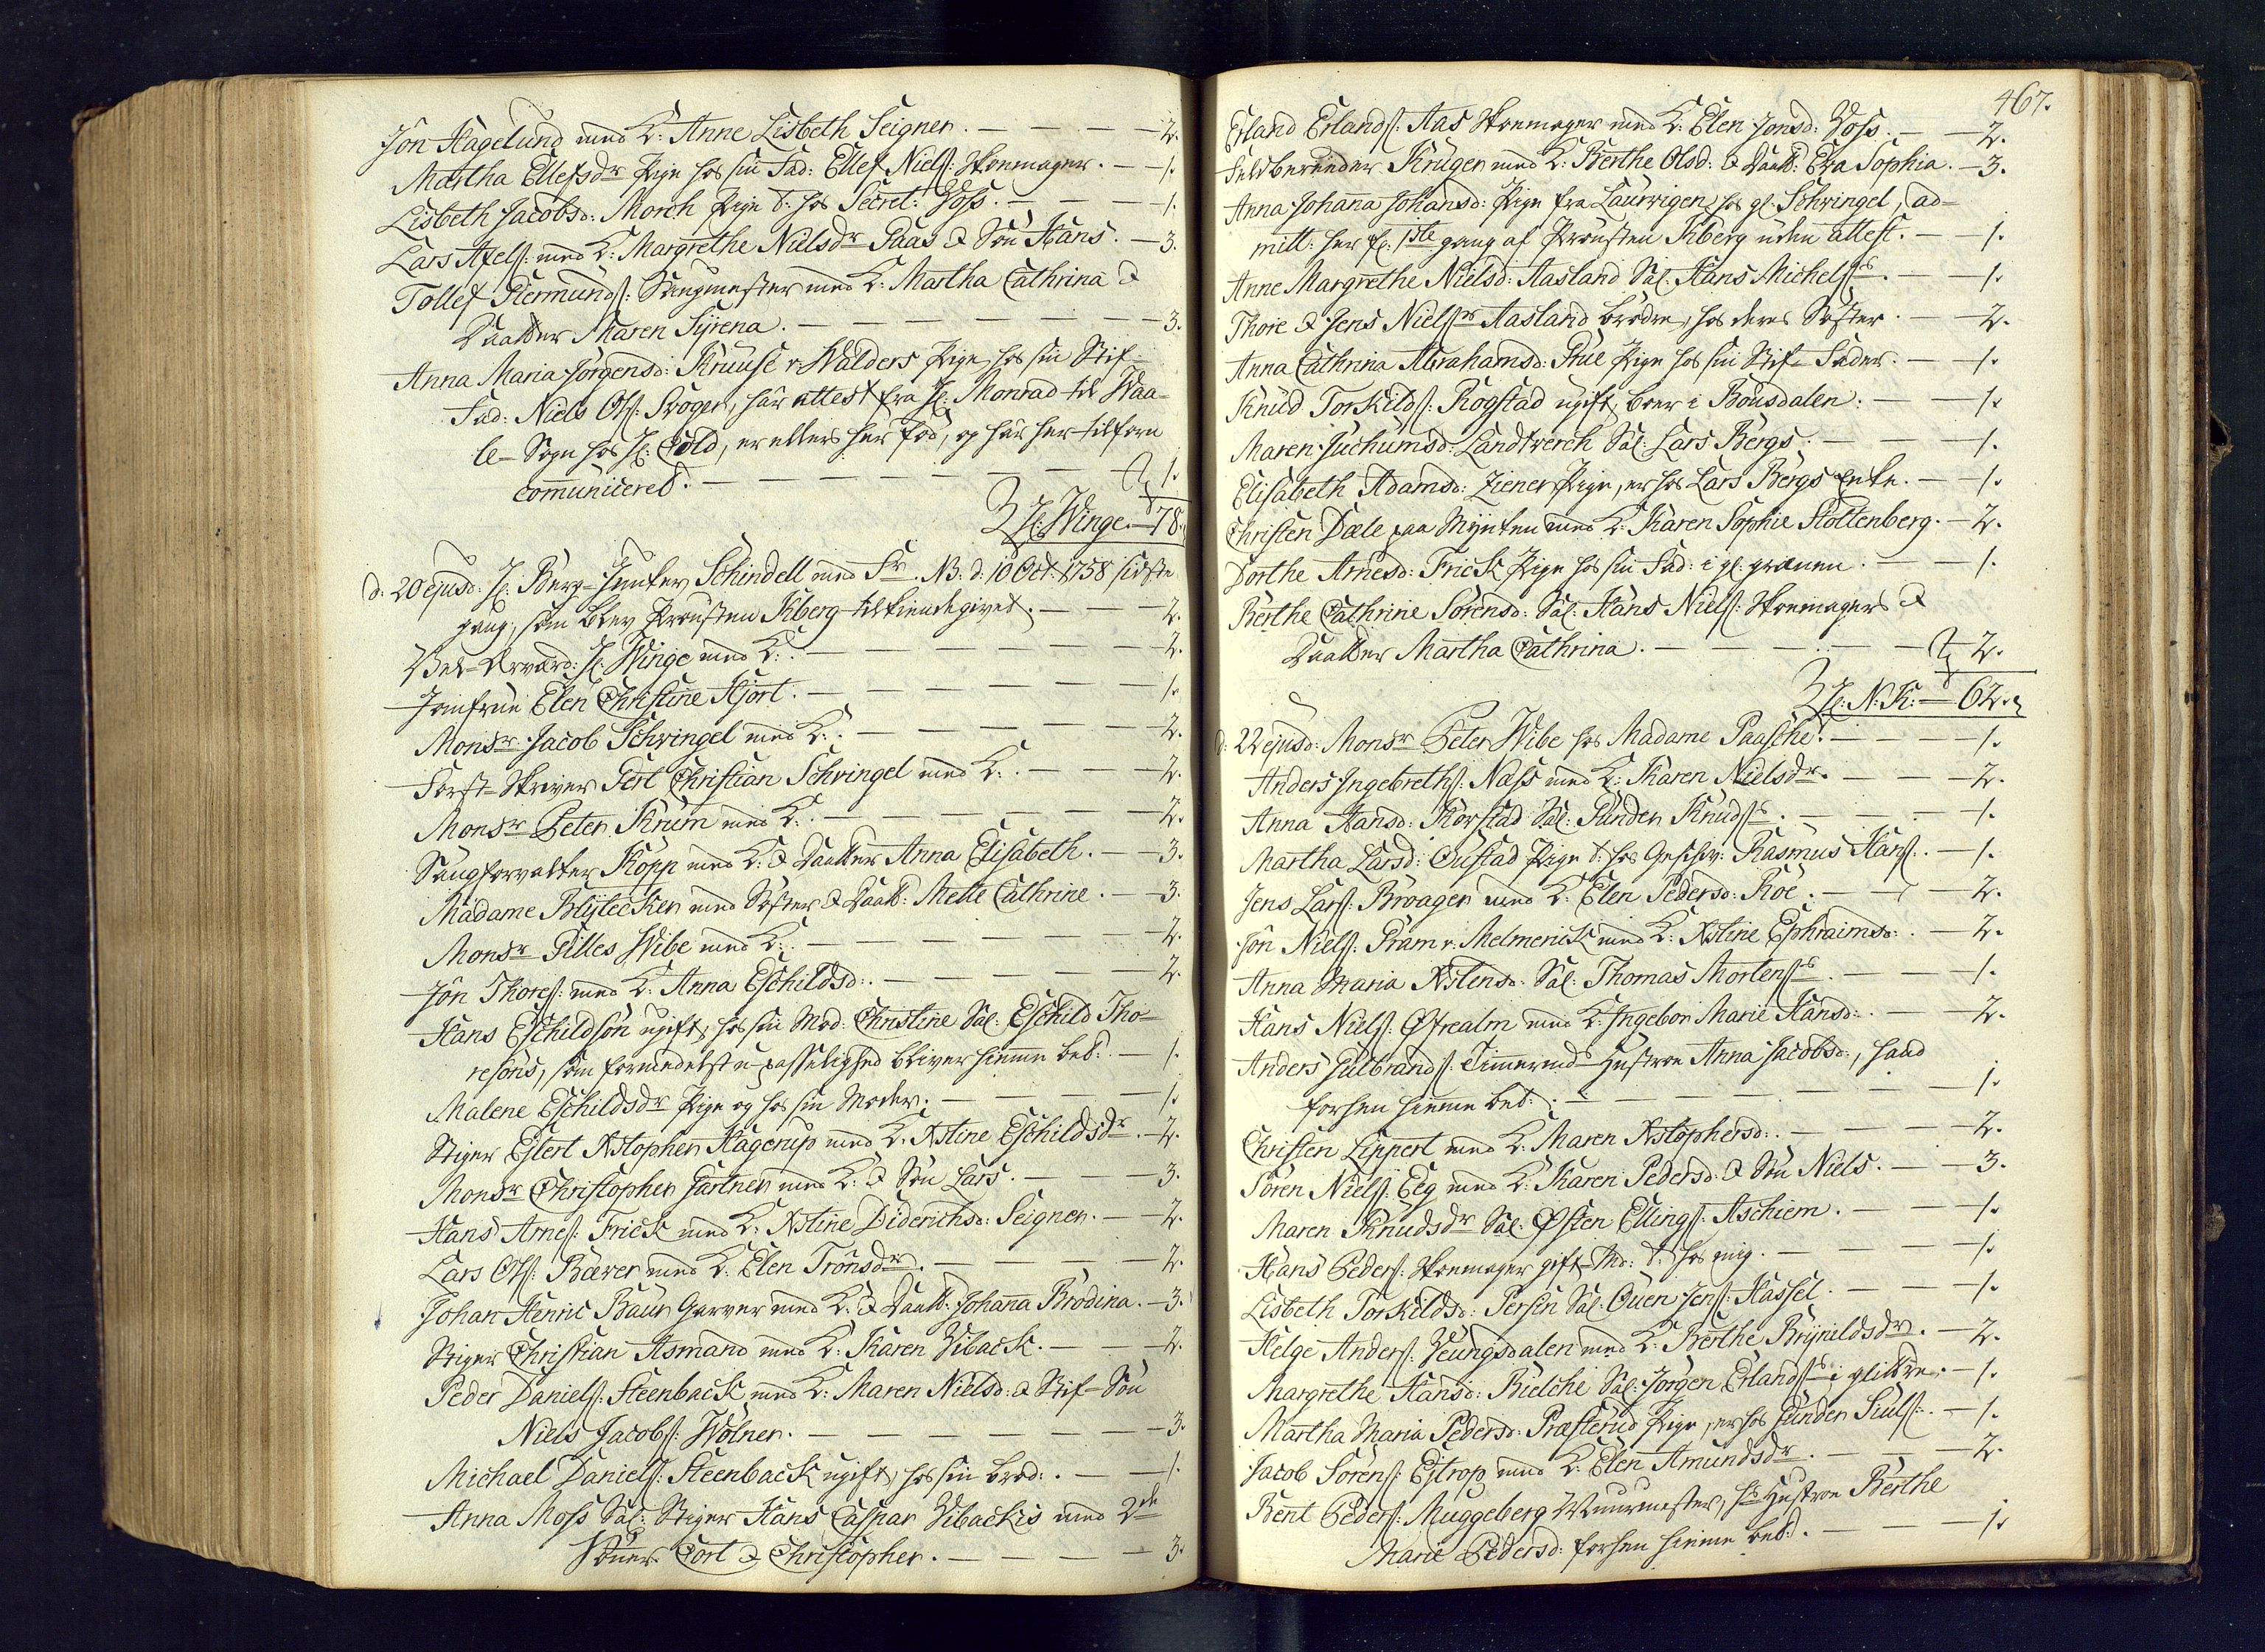 Jôn Hagelund med K: Anne Lisbeth Seigner. — — — — 2.
Martha Ellefsdr Pige hos sin Fad: Ellef Niels: Skoemager. — 1.
Lisbeth Jacobsd: Morch Pige t: hos Secret: Voss. — — — 1.
Lars Axels: med K: Margrethe Nielsdr Paas & Søn Hans. — 3.
Tollef Hermunds: Saugmester med K: Martha Cathrina &
Daatter Maren Syrena. — — — — — — 3.
Anna Maria Jörgensd: Kruuse v: Walders Pige hos sin Stif-
Fad: Niels Ols: Svoger, har attest fra H: Monrad til Waa-
le-Sogn hos H: Cold, er ellers her fød, og har her tilforn
communiceret. — — — — — — 1.
H: Winge. — 78.
d. 20 ejusd: H: Berg-Junker Schindell med Fr. NB: d: 10 Oct: 1758 sidste
gang, som blev Prousten Kiberg tilkiendegivet. — — — 2.
Vel-Ærværd: H: Winge med K: — — — — — 2.
Jomfrue Elen Christine Hjort. — — — — — 1.
Monsr Jacob Schwingel med K: — — — — 2.
Forst-Skriver Gert Christian Schwingel med K: — — — 2.
Monsr Peter Krum med K: — — — — — 2.
Saugforvalter Kopp med K: & Daatter Anna Elisabeth. — 3.
Madame Blylecker med Søster & Daatt: Mette Cathrine. — 3.
Monsr Gilles Wibe med K: — — — — — 2.
Jôn Thores: med K: Anna Eschildsd: — — — — 2.
Hans Eschildsøn ugift, hos sin Mod: Christine Sal: Eschild Tho-
resøns, som formedelst u-passelighed bliver hiemme bet: — 1.
Malene Eschildsdr Pige og hos sin Moder. — — — 1.
Stiger Eylert Xstopher Hagerup med K: Xstine Eschildsdr. — 2.
Monsr Christopher Gartner med K: & Søn Lars. — — — 3.
Hans Arnes: Frick med K: Xstine Diderichsd: Seigner. — 2.
Lars Ols: Bæver med K: Elen Trônsdr. — — — — 2.
Johan Henric Baur Garver med K: & Daatt: Johana Brodina. — 3.
Stiger Christian Asmand med K: Karen Viback. — — — 2.
Peder Daniels: Steenback med K: Maren Nielsd: & Stif-Søn
Niels Jacobs: Wølner. — — — — — — 3.
Michael Daniels: Steenback ugift, hos sin brod: — — 1.
Anna Moss Sal: Stiger Hans Caspar Vibackis med 2de
Sønner Cort & Christopher. — — — — 3.
467.
Erland Erlands: Aas Skoemager med K: Elen Jonsd: Voss. — — 2.
Feldbereeder Krüger med K: Berthe Olsd: & Daatt: Eva Sophia. — 3.
Anna Johana Johansd: Pige fra Laurvigen, hos gl: Schwingel, ad-
mitt: her p: 1ste gang af Prousten Kiberg uden attest. — 1.
Anne Margrethe Nielsd: Aasland Sal: Hans Michels:s. — 1.
Thore & Jens Niels:r Aasland brødre, hos deres Søster. — 2.
Anna Cathrina Abrahamsd: Rue Pige hos sin Stif-Fader. — 1.
Knud Torkilds: Rogstad ugift, boer i Bousdalen. — — 1.
Maren Juchumsd: Landtwerch Sal: Lars Bergs. — — — 1.
Elisabeth Adamsd: Ziener Pige, er hos Lars Bergs Enke. — 1.
Christen Dæle paa Mynten med K: Karen Sophie Stoltenberg. — 2.
Dorthe Arnesd: Frick Pige hos sin Fad: i gl: gruven. — — 1.
Berthe Cathrine Sørensd: Sal: Hans Niels: Skoemagers &
Daatter Martha Cathrina. — — — — 2.
H: N: K: — 62.
d: 22 ejusd: Monsr Peter Wibe hos Madame Paasche. — — 1.
Anders Ingebreths: Næss med K: Karen Nielsdr. — — — 2.
Anna Hansd: Korstad Sal: Gunder Knuds:s. — — — 1.
Martha Larsd: Oustad Pige t: hos Geschw: Rasmus Hans: — 1.
Jens Lars: Broager med K: Elen Pedersd: Roe. — — — 2.
Jôn Niels: Gram v: Melmerick med K: Xstine Ephraimsd: — 2.
Anna Maria Xstensd: Sal: Thomas Mortens:s. — — — 1.
Hans Niels: Ofrealm med K: Ingebor Marie Hansd: — — 2.
Anders Gulbrands: Timmermd Hustroe Anna Jacobsd:, hand
forhen hiemme bet: — — — — — 1.
Christen Lippert med K: Maren Xstophersd: — — — 2.
Søren Niels: Eeg med K: Karen Pedersd: & Søn Niels. — 3.
Maren Knudsdr Sal: Østen Ellings: Aschiem. — — — 1.
Hans Peders: Skoemager gift Md: t: hos mig. — — — 1.
Lisbeth Torkildsd: Persen Sal: Ouen Jens: Hassel. — — 1.
Helge Anders: Jeungsdalen med K: Berthe Brynildsdr. — 2.
Margrethe Hansd: Bielche Sal: Jørgen Erlands:s i glittre. — 1.
Martha Maria Pedersd: Præsterud Pige, er hos Gunder Siuls: — 1.
Jacob Sørens: Estrop med K: Elen Amundsdr. — — — 2.
Bent Peders: Muggeberg Muurmester, hs Hustroe Berthe
Marie Pedersd: forhen hiemme bet: — — — 1.